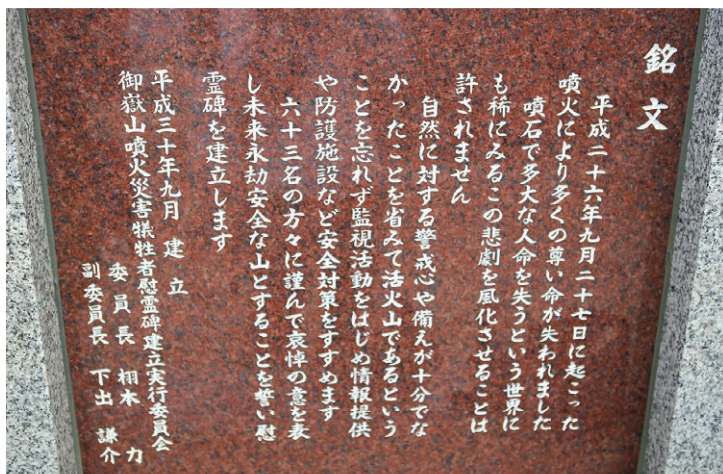 銘文
平成二十六年九月二十七日に起こった
噴火により多くの尊い命が失われました
噴石で多大な人命を失うという世界に
も稀にみるこの悲劇を風化させることは
許されません
自然に対する警戒心や備えが十分でな
かったことを省みて活火山であるという
ことを忘れず監視活動をはじめ情報提供
や防護施設など安全対策をすすめます
六十三名の方々に謹んで哀悼の意を表
し未来永劫安全な山とすることを誓い慰
霊碑を建立します
平成三十年九月 建立
御嶽山噴火災害犠牲者慰霊碑建立実行委員会
委員長 栩木 力
副委員長 下出 謙介